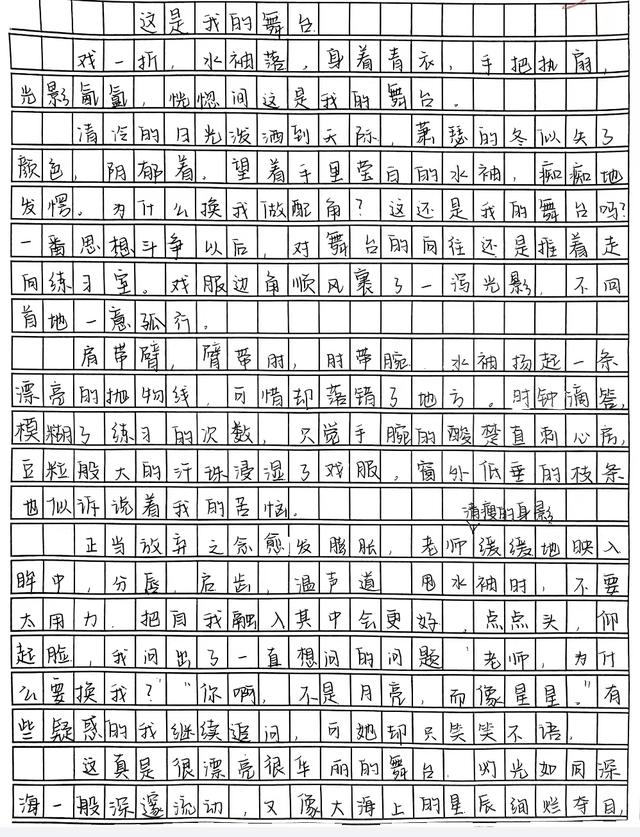 这是我的舞台
戏一折，水袖落，身着青衣，手把执扇，
光影氤氲，恍惚间这是我的舞台。
清冷的日光泼洒到天际，萧瑟的冬似失了
颜色，阴郁着。望着手里莹白的水袖，痴痴地
发愣。为什么换我做配角？这还是我的舞台吗？
一番思想斗争以后，对舞台的向往还是推着走
向练习室。戏服边角顺风裹了一泻光影，不回
首地一意孤行。
肩带臂，臂带肘，肘带腕，水袖扬起一条
漂亮的抛物线，可惜却落错了地方。时钟滴答，
模糊了练习的次数，只觉手腕的酸楚直刺心房，
豆粒般大的汗珠浸湿了戏服，窗外低垂的枝条
也似诉说着我的苦恼。
清瘦的身影
正当放弃之念愈发膨胀，老师缓缓地映入
眸中，分唇，启齿，温声道 甩水袖时，不要
太用力．把自我融入其中会更好，点点头，仰
起脸，我问出了一直想问的问题“老师，为什
么要换我？”“你啊，不是月亮，而像星星。”有
些疑惑的我继续追问，可她却只笑笑不语，
这真是很漂亮很华丽的舞台．灯光如同深
海一般深邃流动，又像大海上的星辰绚烂夺目，